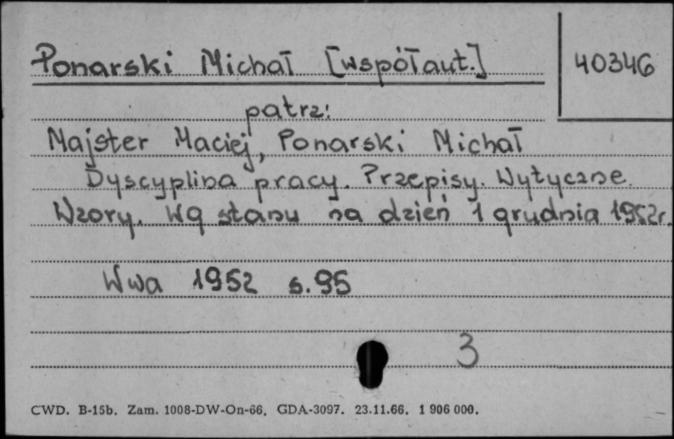 Ponarski Michał [współaut.]
40346
patrz:
Majster Maciej, Ponarski Michał
Dyscyplina pracy. Przepisy. Wytyczne.
Wzory. Wg stanu na dzień 1 grudnia 1952r.
Wwa 1952 s. 95
3
CWD. B-15b. Zam. 1008-DW-On-66. GDA-3097. 23.11.66. 1 906 000.